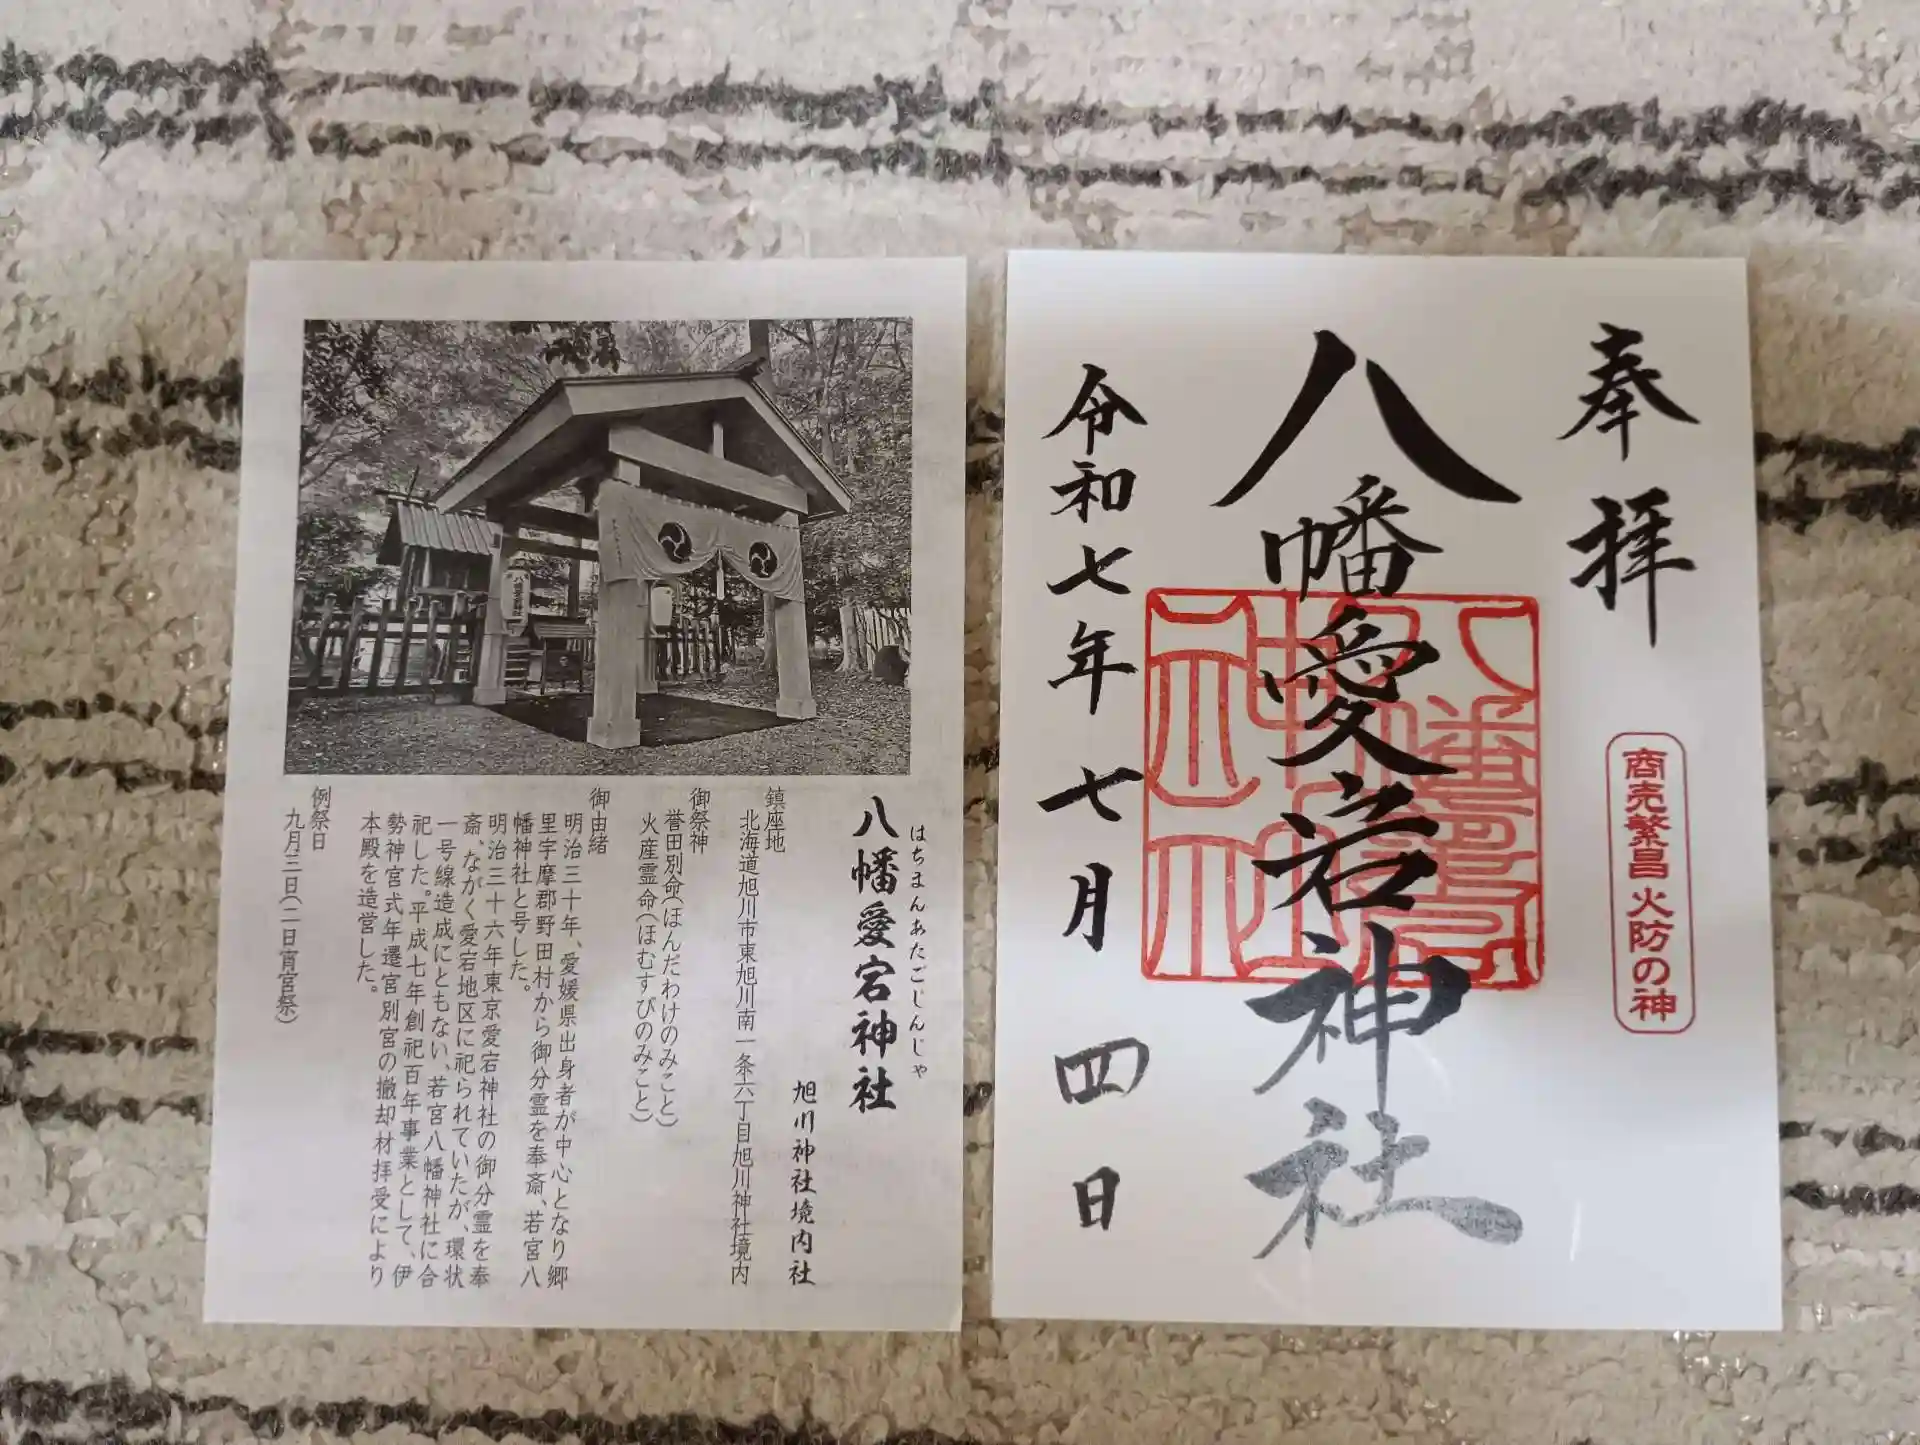 奉拝
商売繁昌 火防の神
八幡愛宕神社
令和七年七月四日
はちまんあたごじんじゃ
八幡愛宕神社
旭川神社境内社
鎮座地
北海道旭川市東旭川南一条六丁目旭川神社境内
御祭神
誉田別命(ほんだわけのみこと)
火産霊命(ほむすびのみこと)
御由緒
明治三十年、愛媛県出身者が中心となり郷
里宇摩郡野田村から御分霊を奉斎、若宮八
幡神社と号した。
明治三十六年東京愛宕神社の御分霊を奉
斎、ながく愛宕地区に祀られていたが、環状
一号線造成にともない、若宮八幡神社に合
祀した。平成七年創祀百年事業として、伊
勢神宮式年遷宮別宮の撤却材拝受により
本殿を造営した。
例祭日
九月三日(二日宵宮祭)